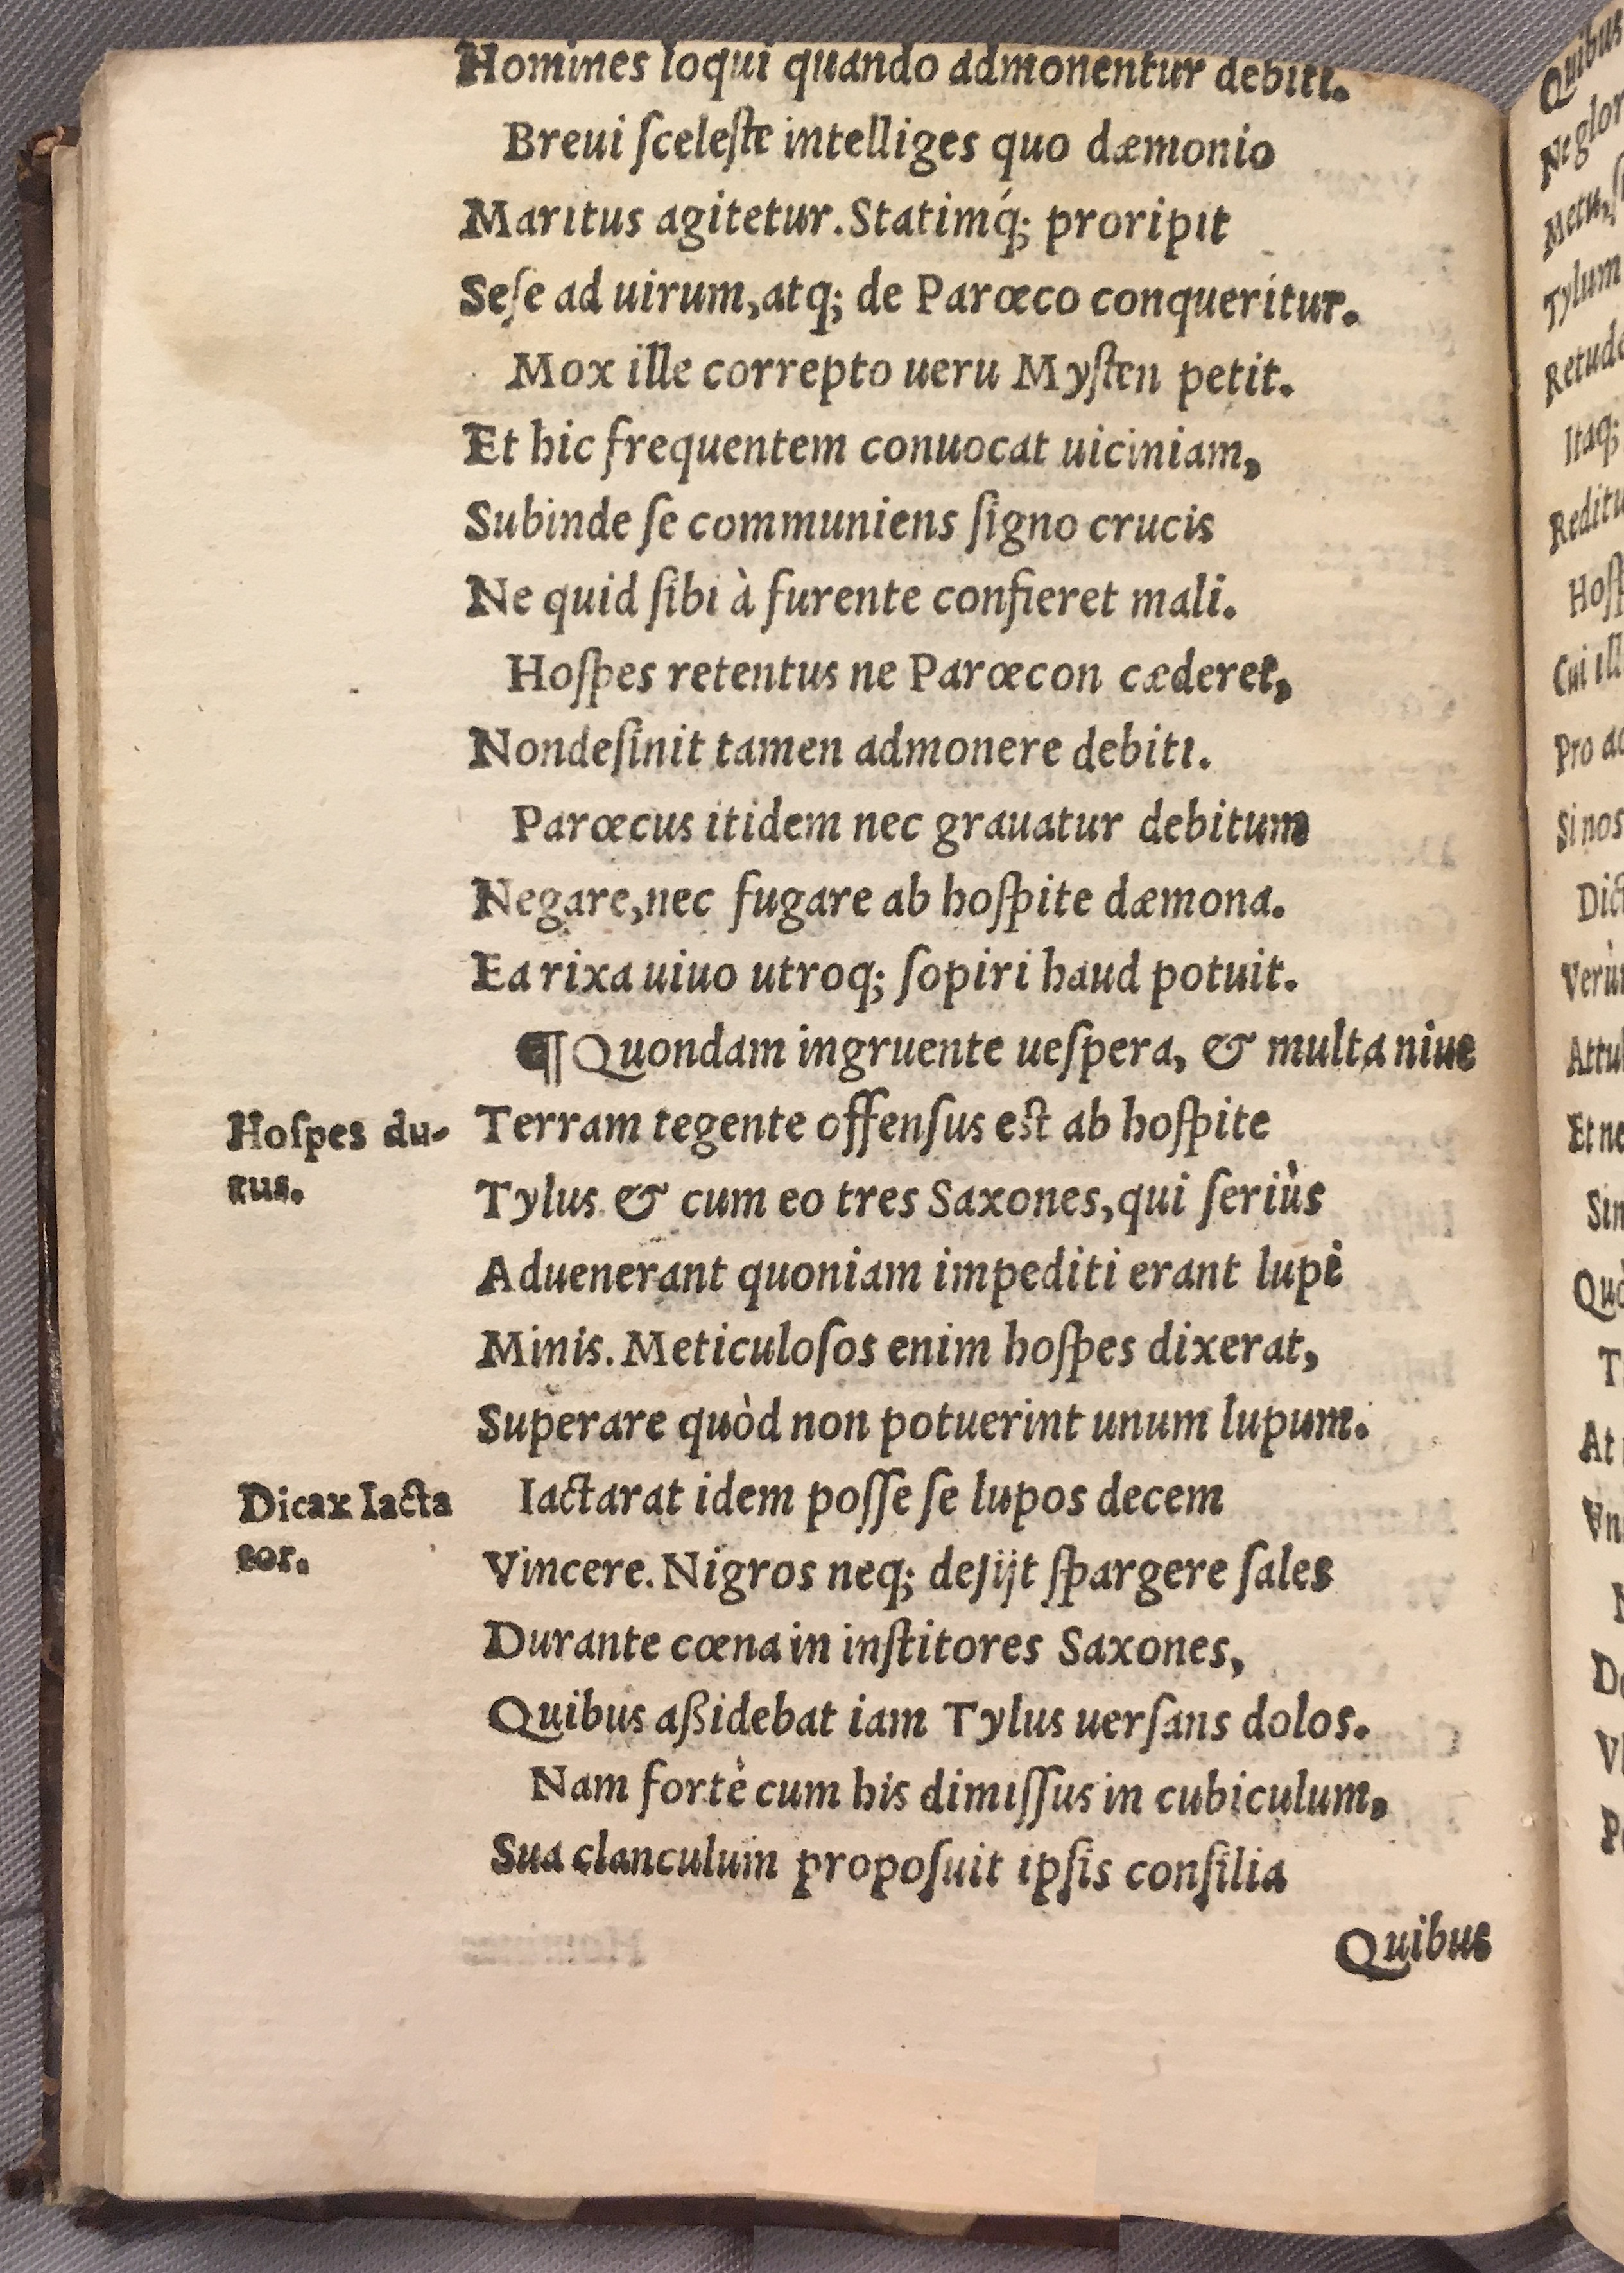 Homines loqui quando admonentur debiti.
Breui ſceleſte intelliges quo dæmonio
Maritus agitetur. Statimq́; proripit
Seſe ad uirum, atq; de Parœco conqueritur.
Mox ille correpto ueru Myſten petit.
Et hic frequentem conuocat uiciniam,
Subinde ſe communiens ſigno crucis
Ne quid ſibi à furente confieret mali.
Hoſpes retentus ne Parœcon cæderet,
Nondeſinit tamen admonere debiti.
Parœcus itidem nec grauatur debitum
Negare, nec fugare ab hoſpite dæmona.
Ea rixa uiuo utroq; ſopiri haud potuit.
¶ Quondam ingruente ueſpera, & multa niue
Hoſpes du-
tus.
Terram tegente offenſus eſt ab hoſpite
Tylus & cum eo tres Saxones, qui ſeriùs
Aduenerant quoniam impediti erant lupi
Minis. Meticuloſos enim hoſpes dixerat,
Superare quòd non potuerint unum lupum.
Dicax Iacta
tor.
Iactarat idem poſſe ſe lupos decem
Vincere. Nigros neq; deſijt ſpargere ſales
Durante cœna in inſtitores Saxones,
Quibus aßidebat iam Tylus uerſans dolos.
Nam fortè cum his dimiſſus in cubiculum,
Sua clanculum propoſuit ipſis conſilia
Quibus
Quibus
Metu,
Tylum
Itaq;
Cui ill
Si nos
Et ne
At